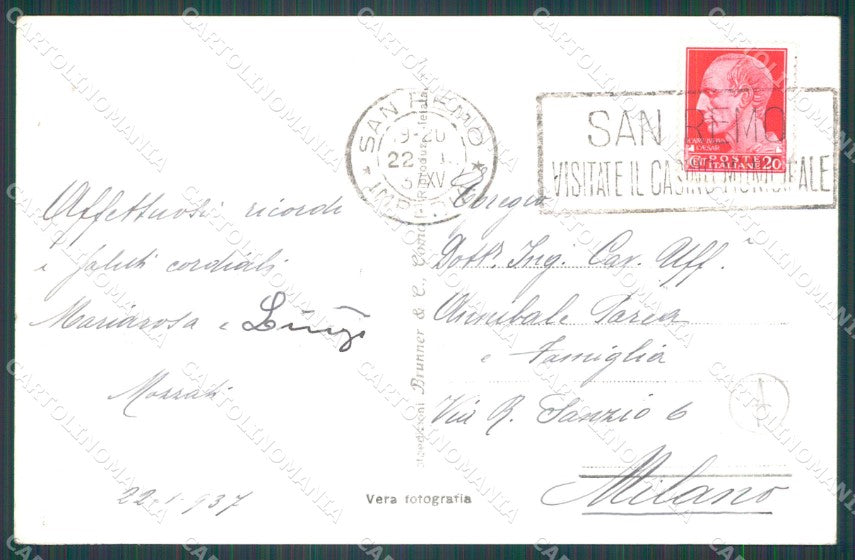 SAN REMO
9-20
22
XV
SAN REMO
VISITATE IL CASINO MUNICIPALE
CAESAR
POSTE
ITALIANE 20
Affettuosi ricordi
e saluti cordiali
Mariarosa e Luigi
22-1-937
Egregio
Dott. Ing. Cav. Uff.
Annibale
e Famiglia
Via R. Sanzio 6
Milano
Brunner & C., Como
Vera fotografia
CARTOLINOMANIA